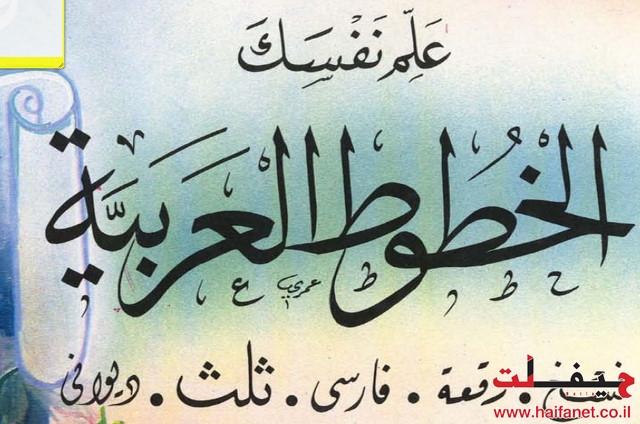 عَلِّم نَفْسَكَ
الخُطُوط العَرَبيَّة
عمري
نسخ . رقعة . فارسى . ثلث . ديوانى
www.haifanet.co.il